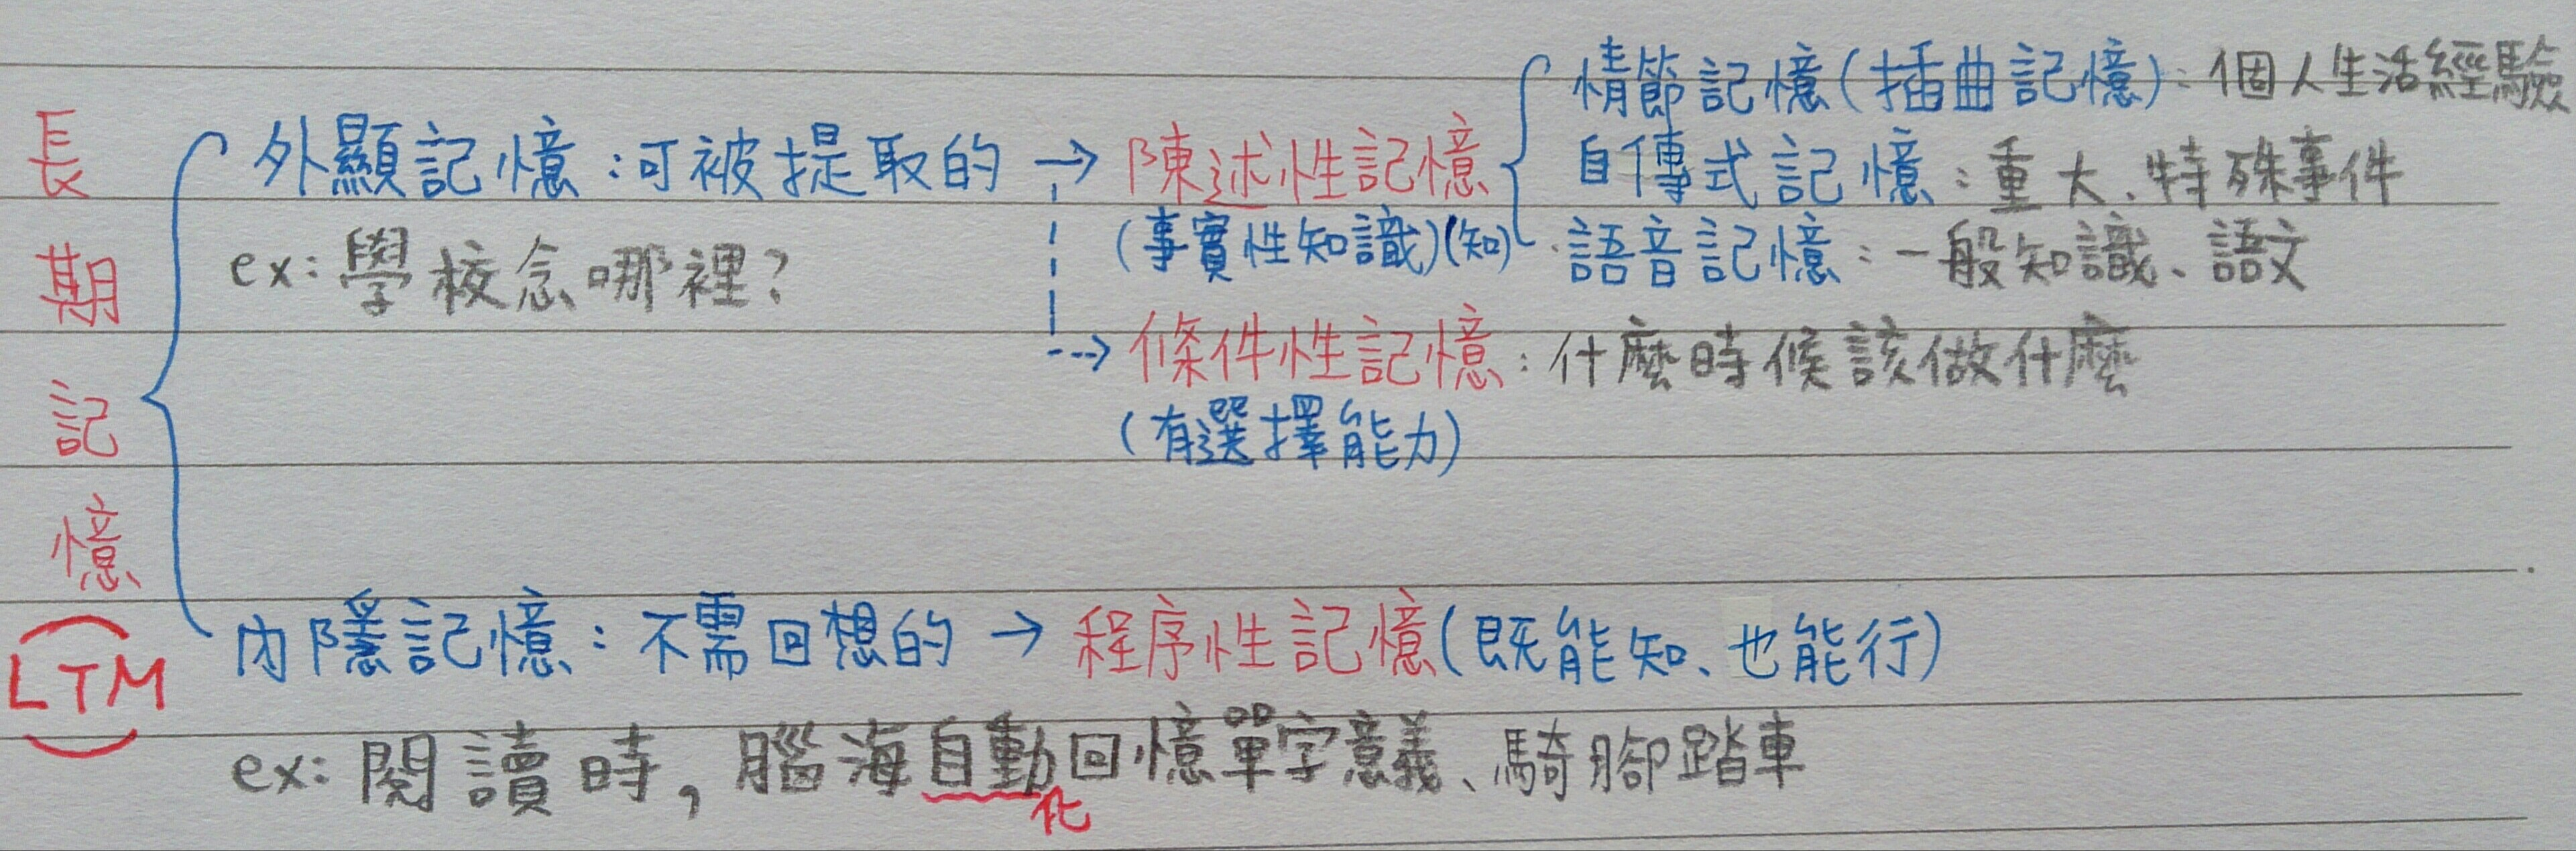 長期記憶
(LTM)
外顯記憶:可被提取的→陳述性記憶
(事實性知識)(知)
情節記憶(插曲記憶):個人生活經驗
自傳式記憶:重大、特殊事件
語音記憶:一般知識、語文
ex:學校念哪裡?
條件性記憶:什麼時候該做什麼
(有選擇能力)
內隱記憶:不需回想的→程序性記憶(既能知、也能行)
ex:閱讀時,腦海自動化回憶單字意義、騎腳踏車